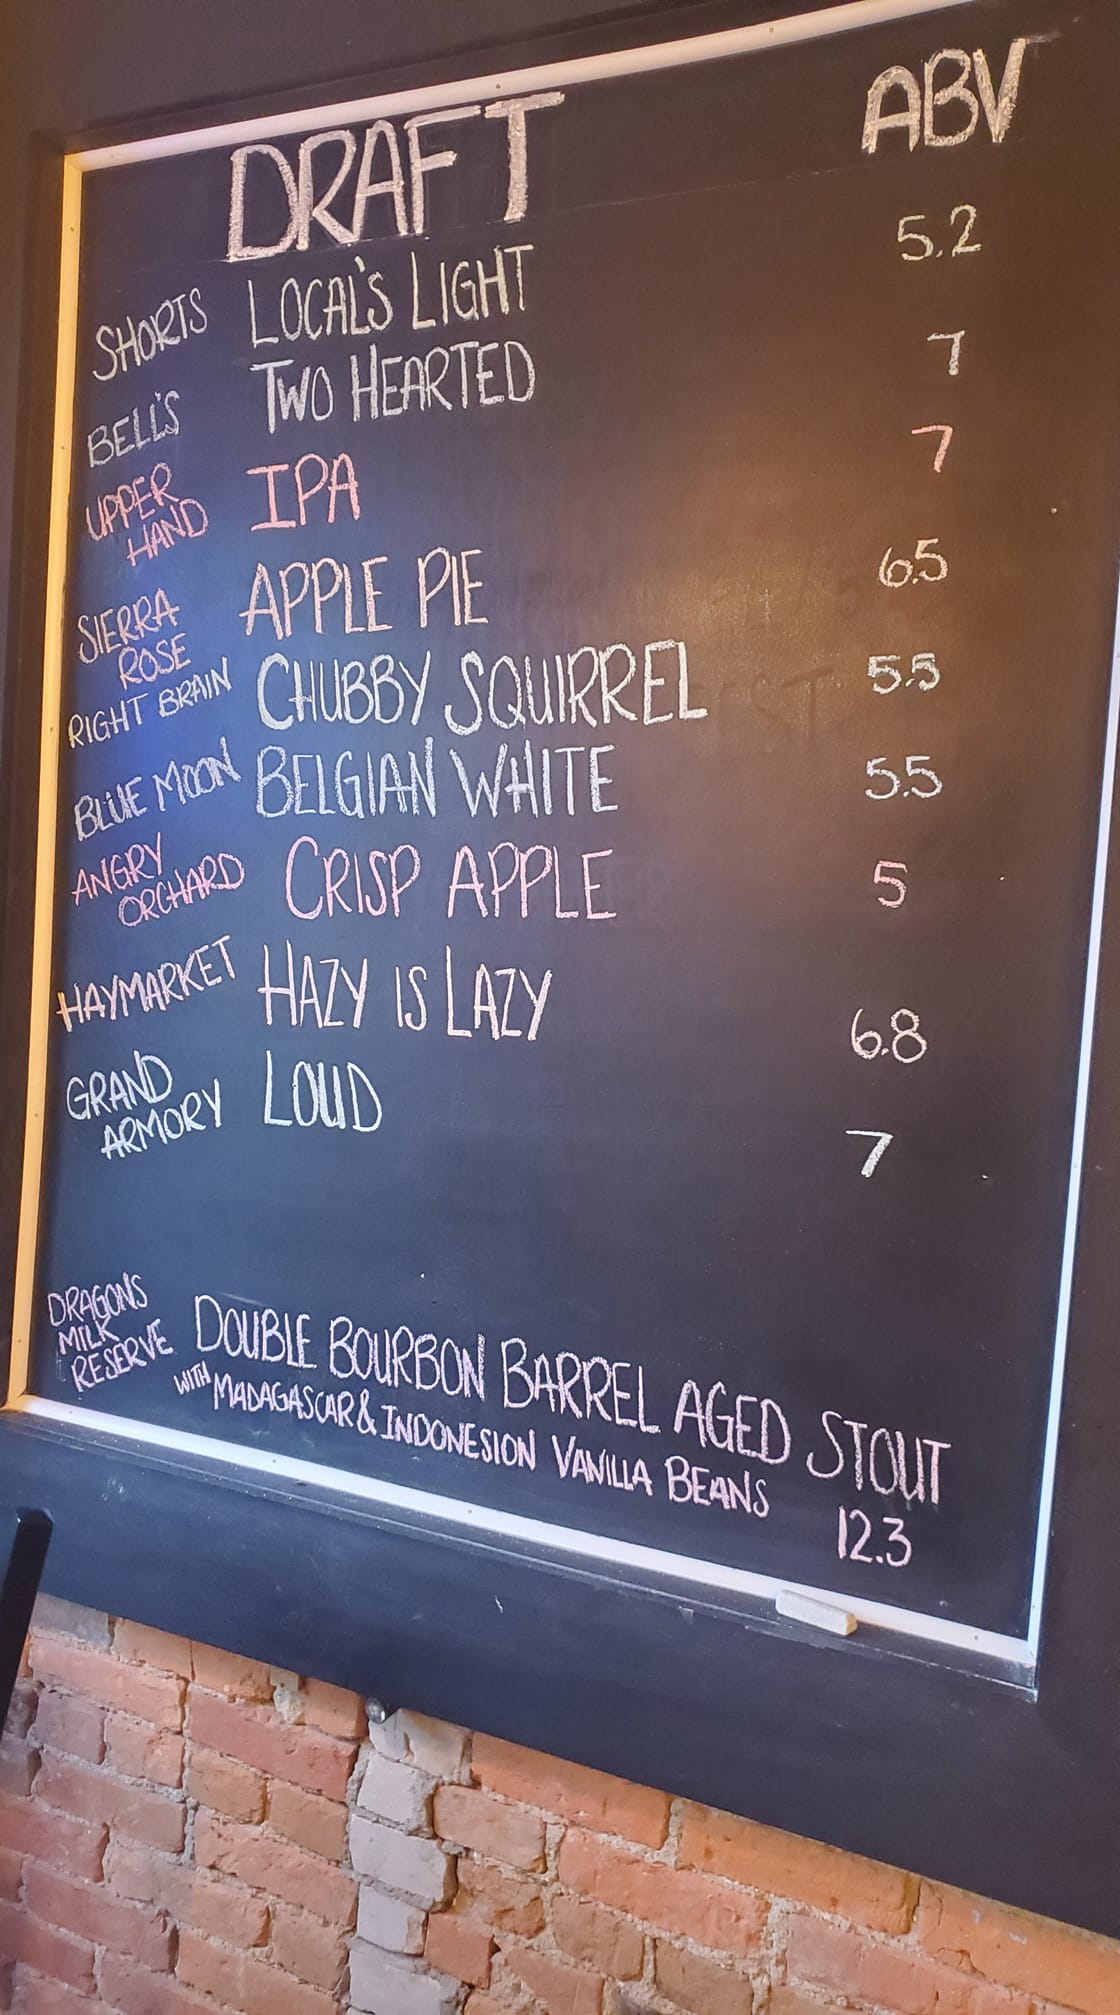 DRAFT ABV
SHORTS LOCAL'S LIGHT 5.2
BELL'S TWO HEARTED 7
UPPER HAND IPA 7
SIERRA ROSE APPLE PIE 6.5
RIGHT BRAIN CHUBBY SQUIRREL 5.5
BLUE MOON BELGIAN WHITE 5.5
ANGRY ORCHARD CRISP APPLE 5
HAYMARKET HAZY IS LAZY 6.8
GRAND ARMORY LOUD 7
DRAGONS MILK RESERVE DOUBLE BOURBON BARREL AGED STOUT
WITH MADAGASCAR & INDONESION VANILLA BEANS 12.3